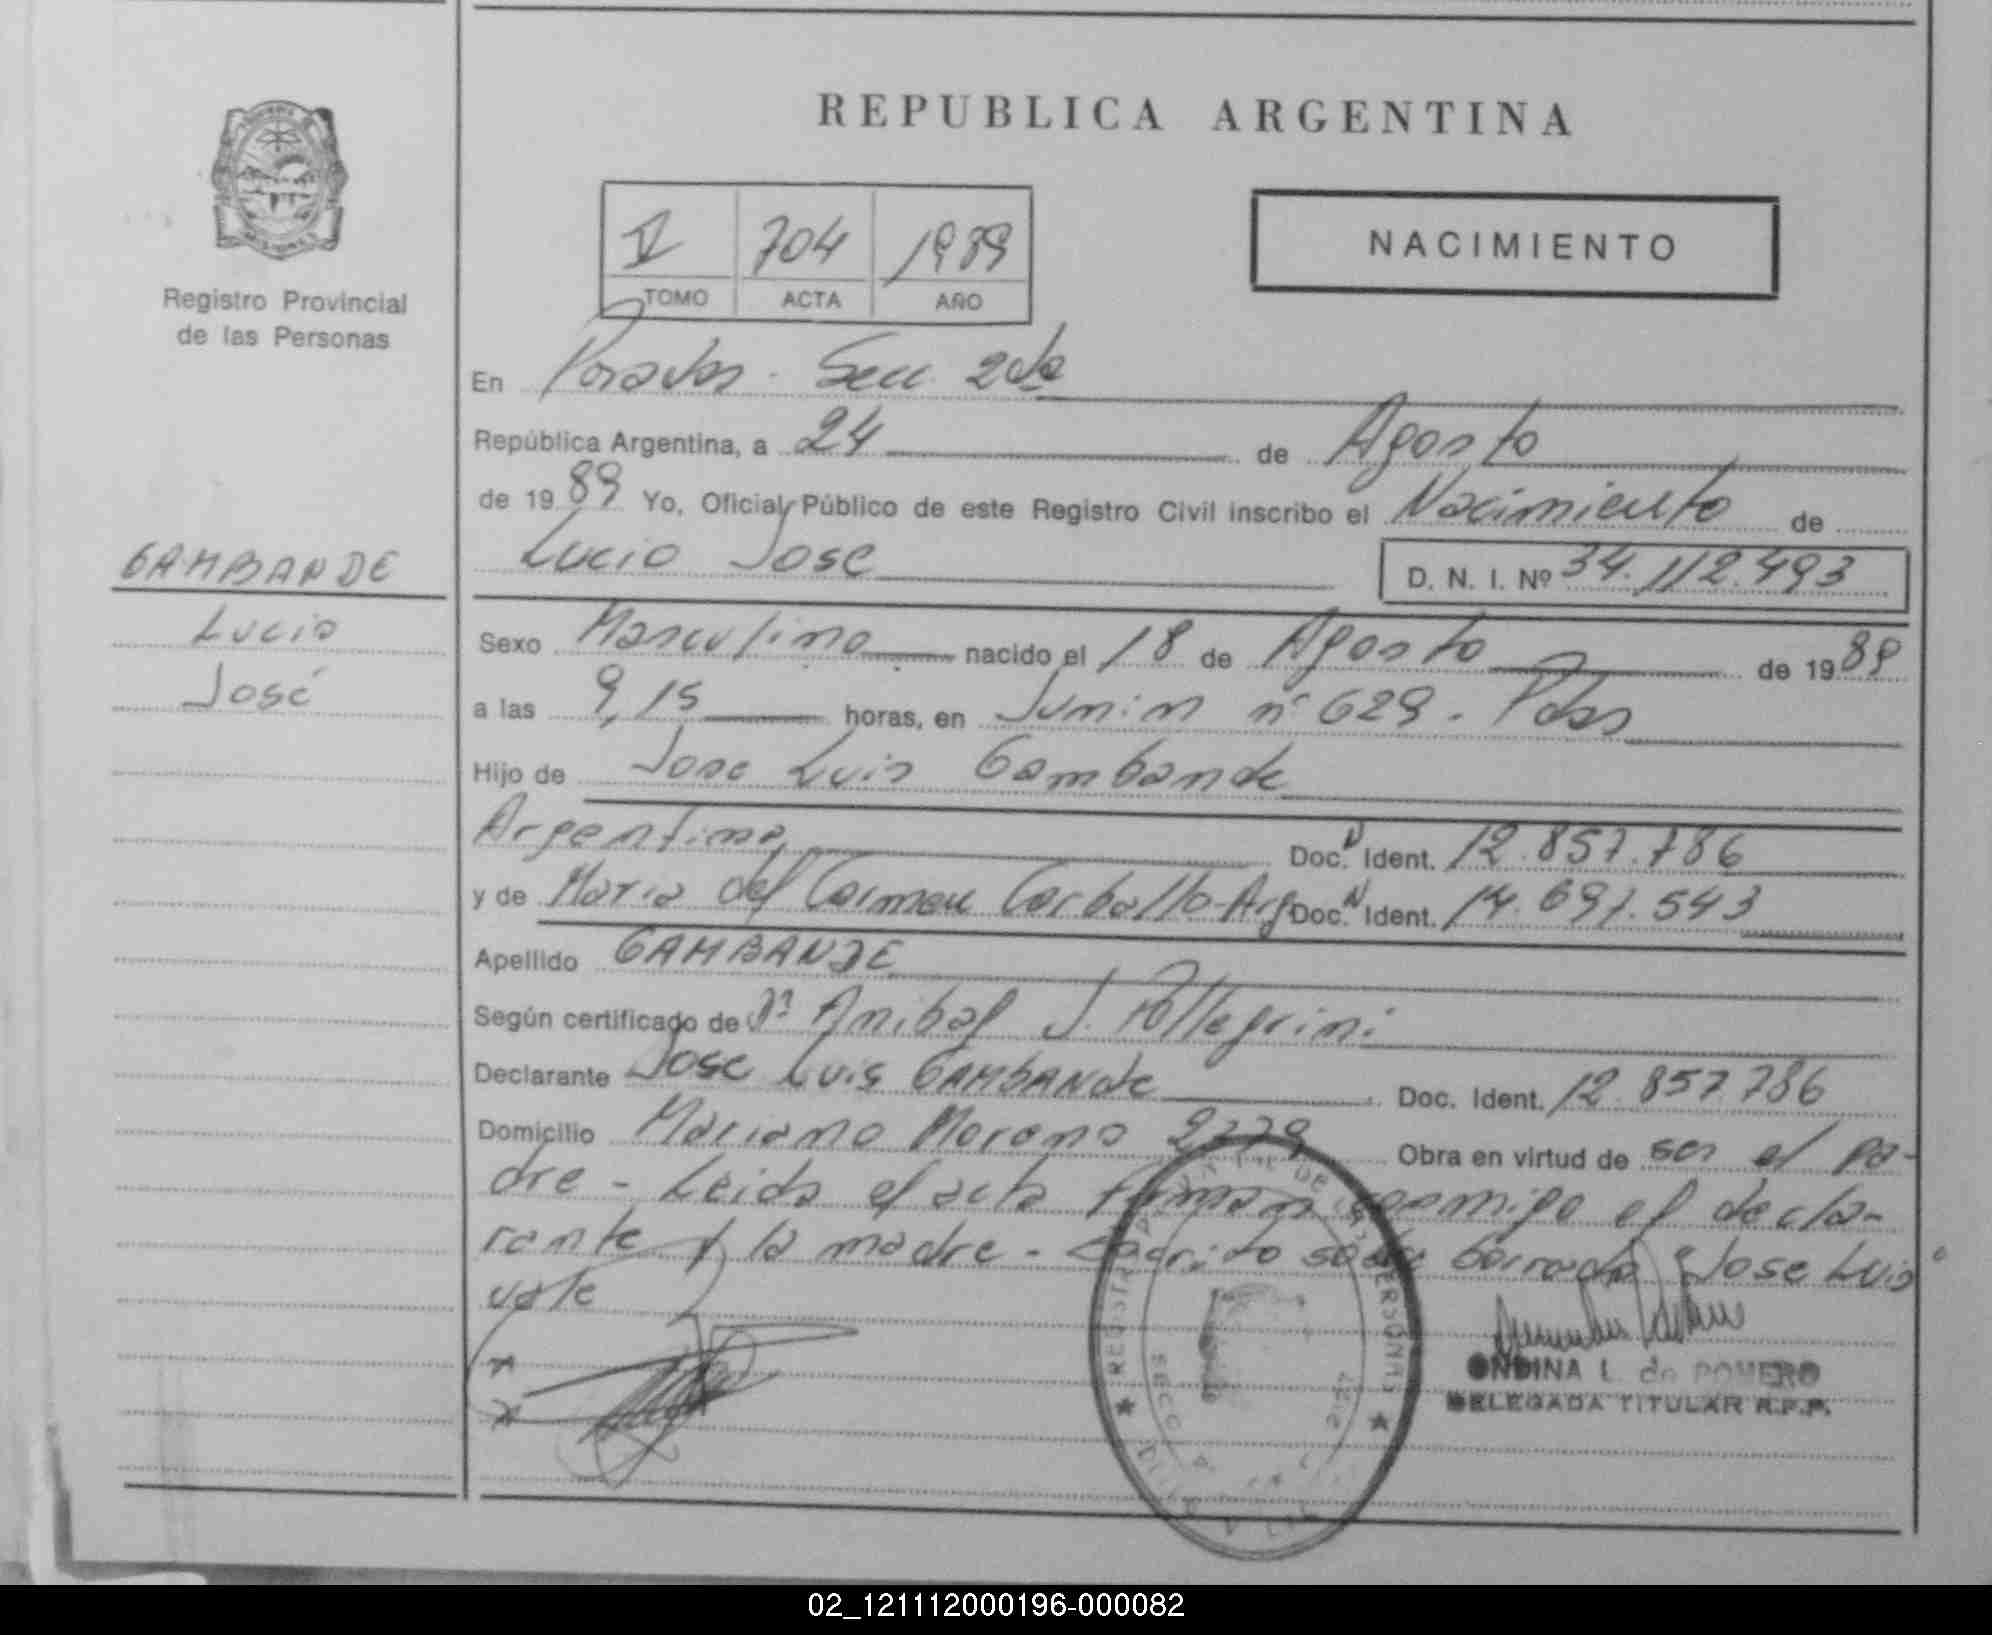 REPUBLICA ARGENTINA
Registro Provincial
de las Personas
V 704 1989
TOMO ACTA AÑO
NACIMIENTO
En Posadas - Secc. 2da
República Argentina, a 24 de Agosto
de 1989 Yo, Oficial Público de este Registro Civil inscribo el Nacimiento de
Lucio Jose D. N. I. Nº 34.112.493
GAMBANDE
Lucio
José
Sexo Masculino nacido el 18 de Agosto de 1989
a las 9,15 horas, en Junin nº 629 - Pdas
Hijo de Jose Luis Gambande
Argentino, Doc. N Ident. 12.857.786
y de Maria del Carmen Carballo-Arg Doc. N Ident. 14.691.543
Apellido GAMBANDE
Según certificado de Dr. Anibal J. Pellegrini
Declarante Jose Luis GAMBANDE Doc. Ident. 12.857.786
Domicilio Mariano Moreno 2779 Obra en virtud de ser el pa-
dre - Leida el acta firman conmigo el decla-
rante y la madre - Escrito sobre borrado "Jose Luis"
vale
ONDINA L. de ROMERO
DELEGADA TITULAR R.P.P.
02_121112000196-000082